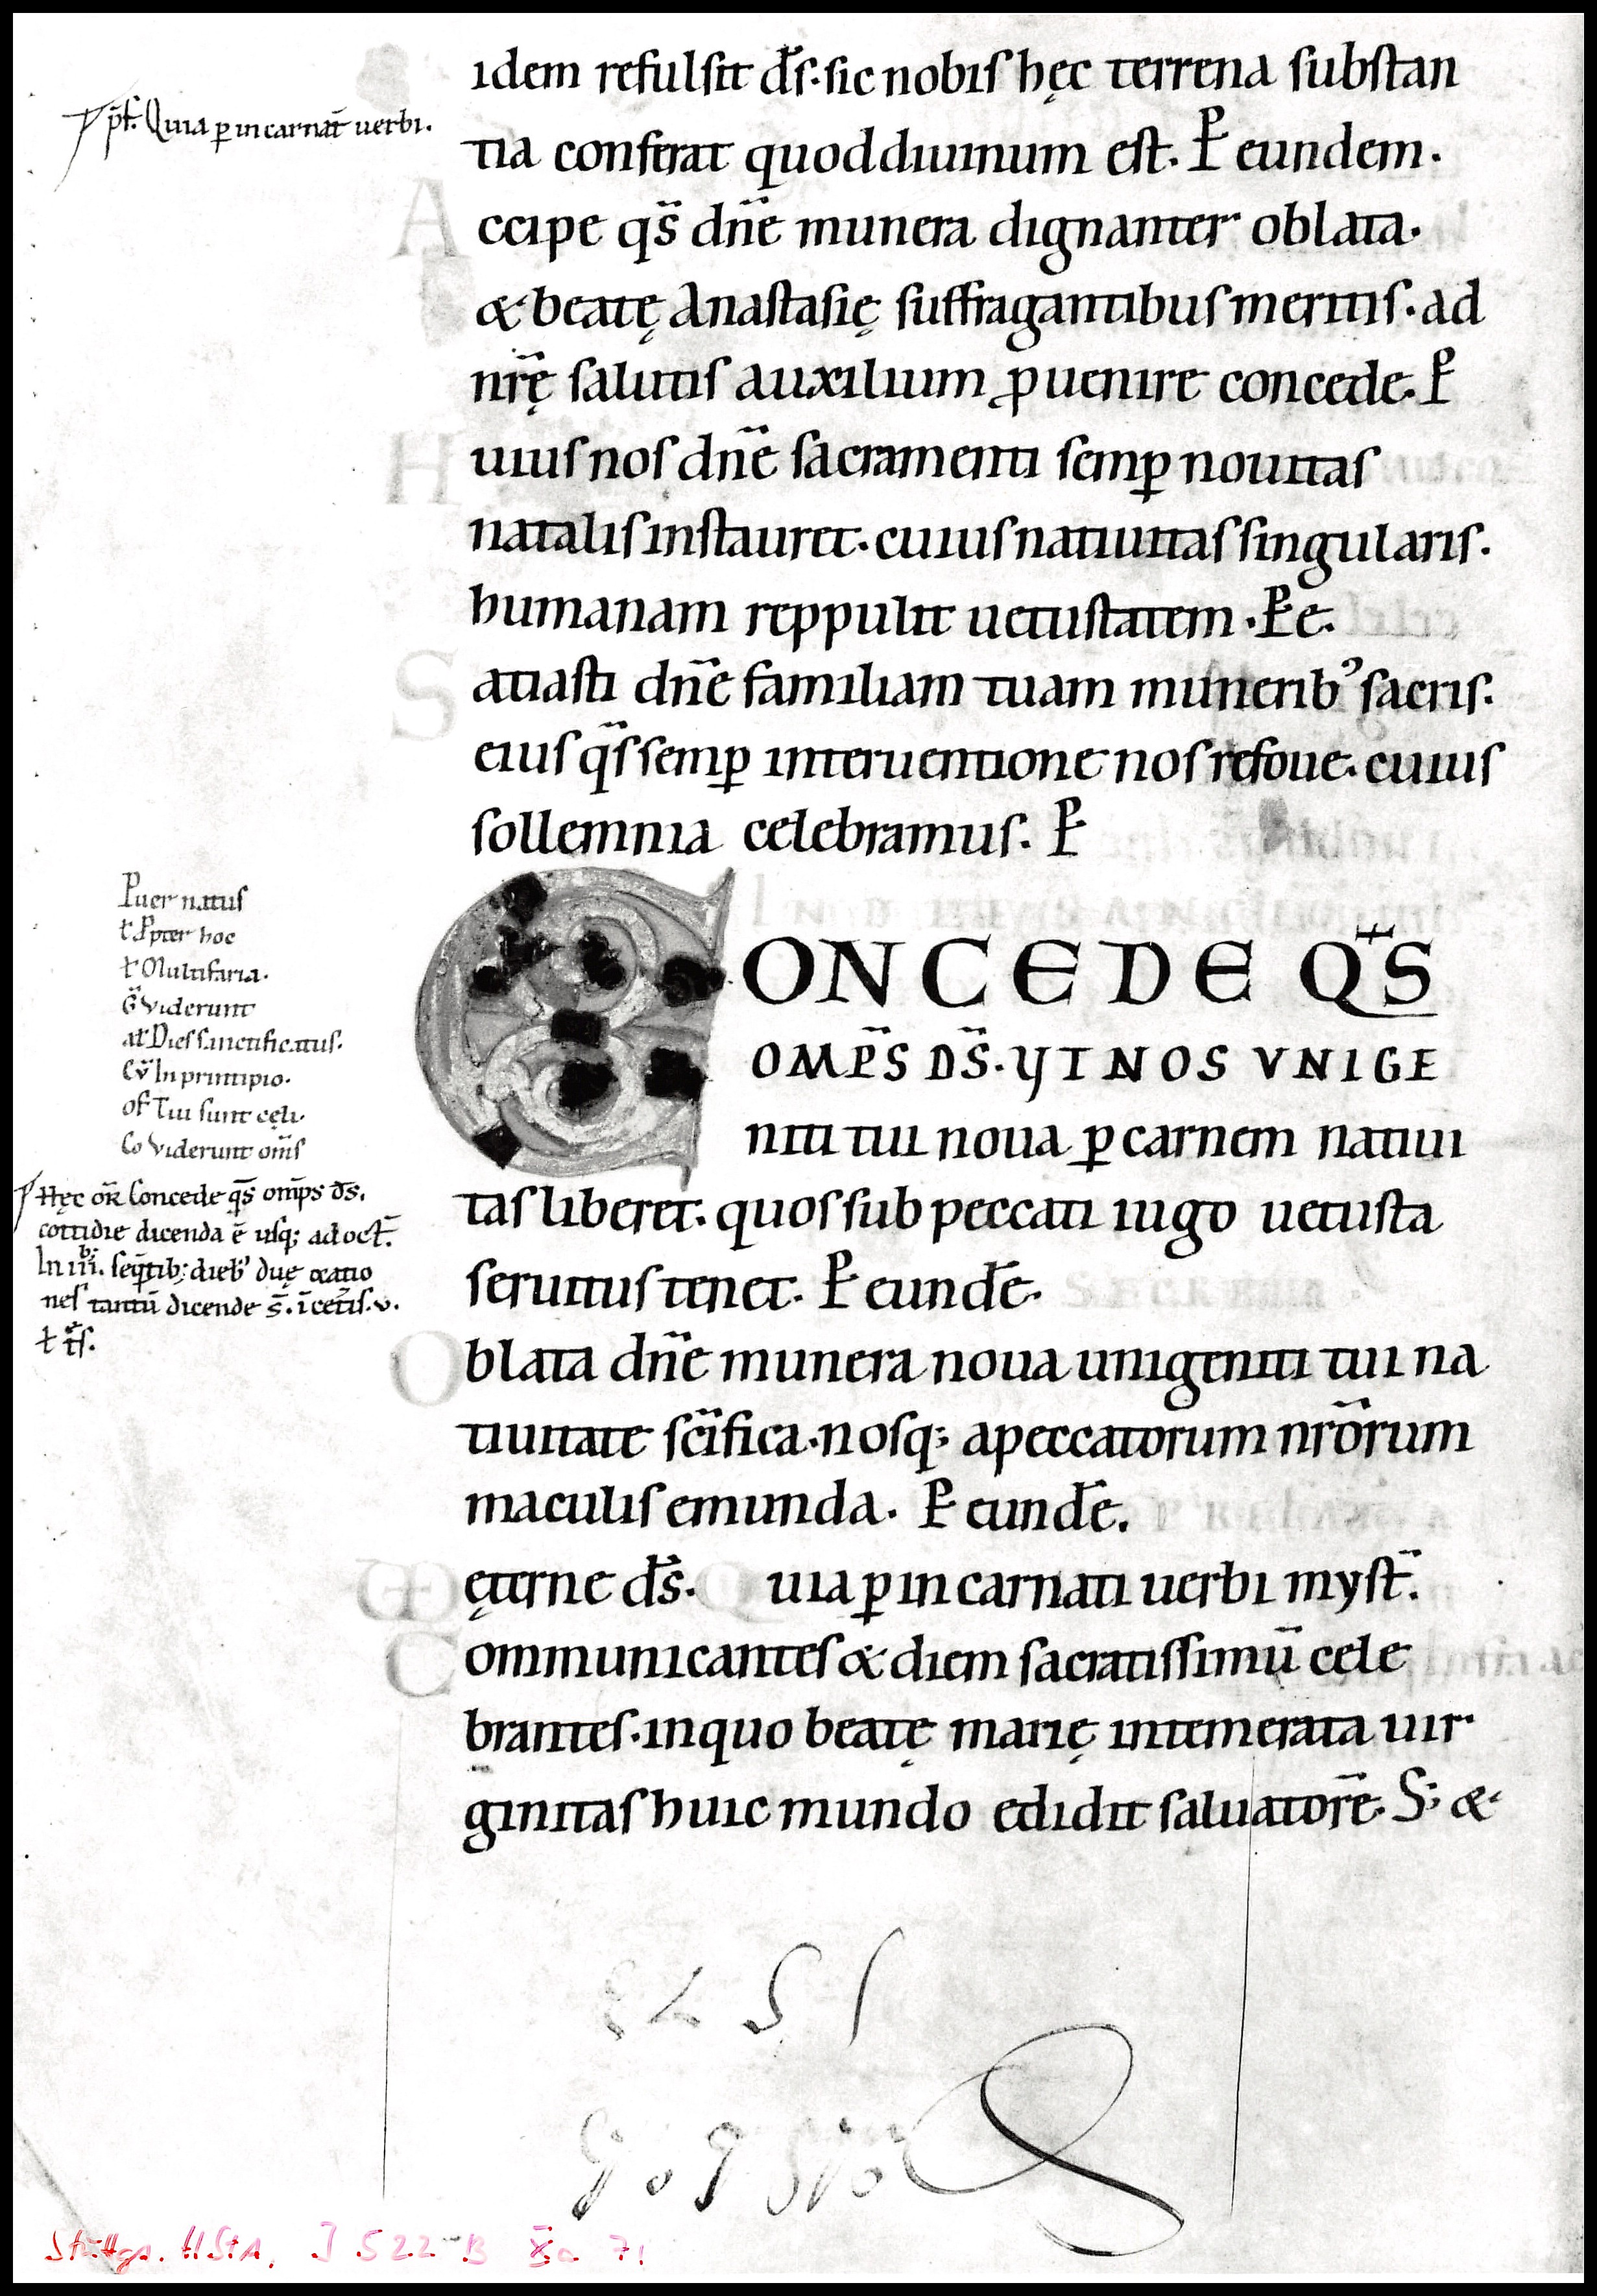 idem refulsit d̄s· sic nobis hęc terrena substan
tia conferat quod diuinum est. P̲ eundem.
Accipe qs̄ dn̄e munera dignanter oblata.
& beatę Anastasię suffragantibus meritis. ad
nrę̄ salutis auxilium ꝓuenire concede. P̲
Huius nos dn̄e sacramenti semꝑ nouitas
natalis instauret. cuius natiuitas singularis.
humanam reppulit uetustatem. P̲ e.
Satiasti dn̄e familiam tuam munerib⁹ sacris.
eius qs̄ semꝑ interuentione nos refoue. cuius
sollemnia celebramus. P̲
CONCEDE QS̄
OMP̄S DS̄. VT NOS VNIGE
niti tui noua ꝑ carnem natiui
tas liberet. quos sub peccati iugo uetusta
seruitus tenet. P̲ eundē.
Oblata dn̄e munera noua unigeniti tui na
tiuitate sc̄ifica. nosq; a peccatorum nr̄orum
maculis emunda. P̲ eundē.
VD ęterne d̄s. Quia ꝑ incarnati uerbi myst̄.
Communicantes & diem sacratissimū cele
brantes. in quo beatę marię intemerata uir
ginitas huic mundo edidit saluatorē. S; &
p̄f. Quia ꝑ incarnat̄ uerbi.
Puer natus
ł P̲pter hoc
ł Multifaria.
G̃ Viderunt
at Dies sanctificatus.
Eṽ In principio.
of Tui sunt cęli.
Co Viderunt om̄s
Hęc or̄ Concede qs̄ om̄ps d̄s.
cottidie dicenda ē usq; ad oct̄.
In iiii. seq̄tib; dieb⁹ duę oratio
nes tantū dicende s̄. ī cet̄is. v.
ł
1572
Stuttga. HStA, J 522 B Xa 71